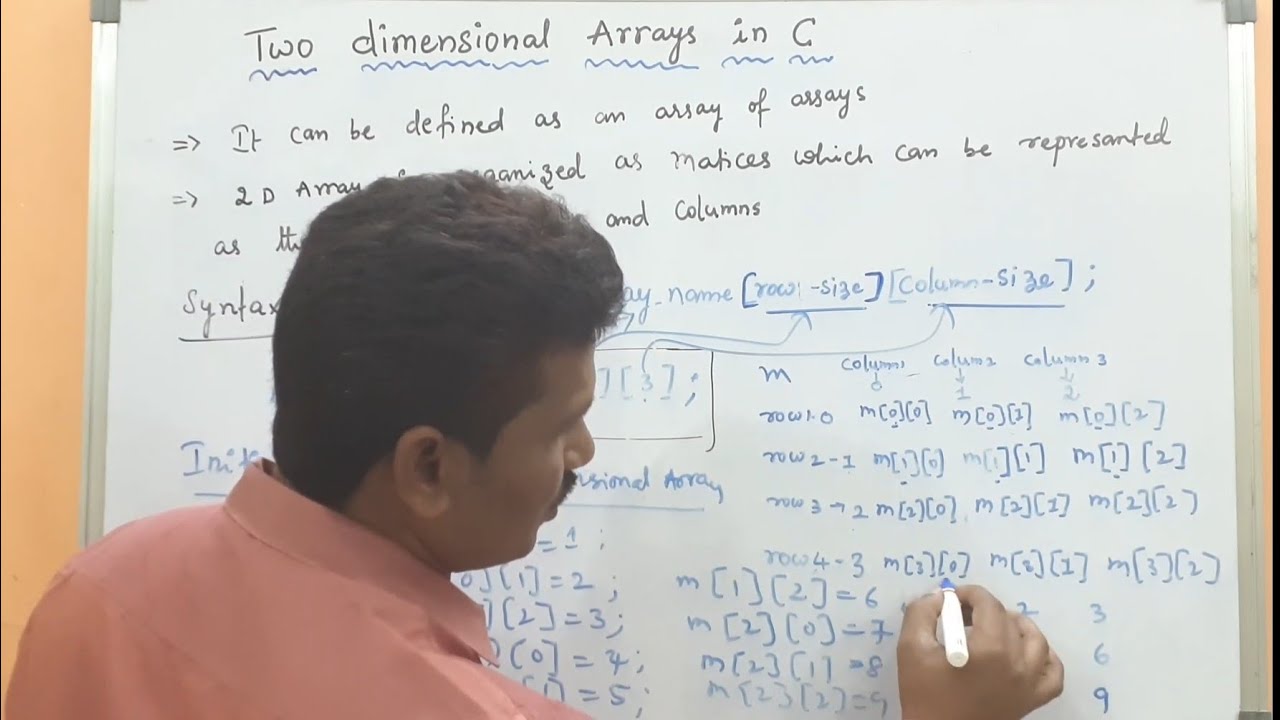 Two dimensional Arrays in C
=> It can be defined as an array of arrays
=> 2D Array organized as matices which can be represanted
as and columns
Syntax ay_name [row-size] [column-size] ;
][3];
m column1 column2 column3
0 1 2
row1.0 m[0][0] m[0][1] m[0][2]
row2-1 m[1][0] m[1][1] m[1][2]
row3→2 m[2][0] m[2][1] m[2][2]
row4-3 m[3][0] m[3][1] m[3][2]
Array
=1;
0][1]=2; m[1][2]=6 2 3
][2]=3; m[2][0]=7
[0]=4; m[2][1]=8 6
]=5; m[2][2]=9 9